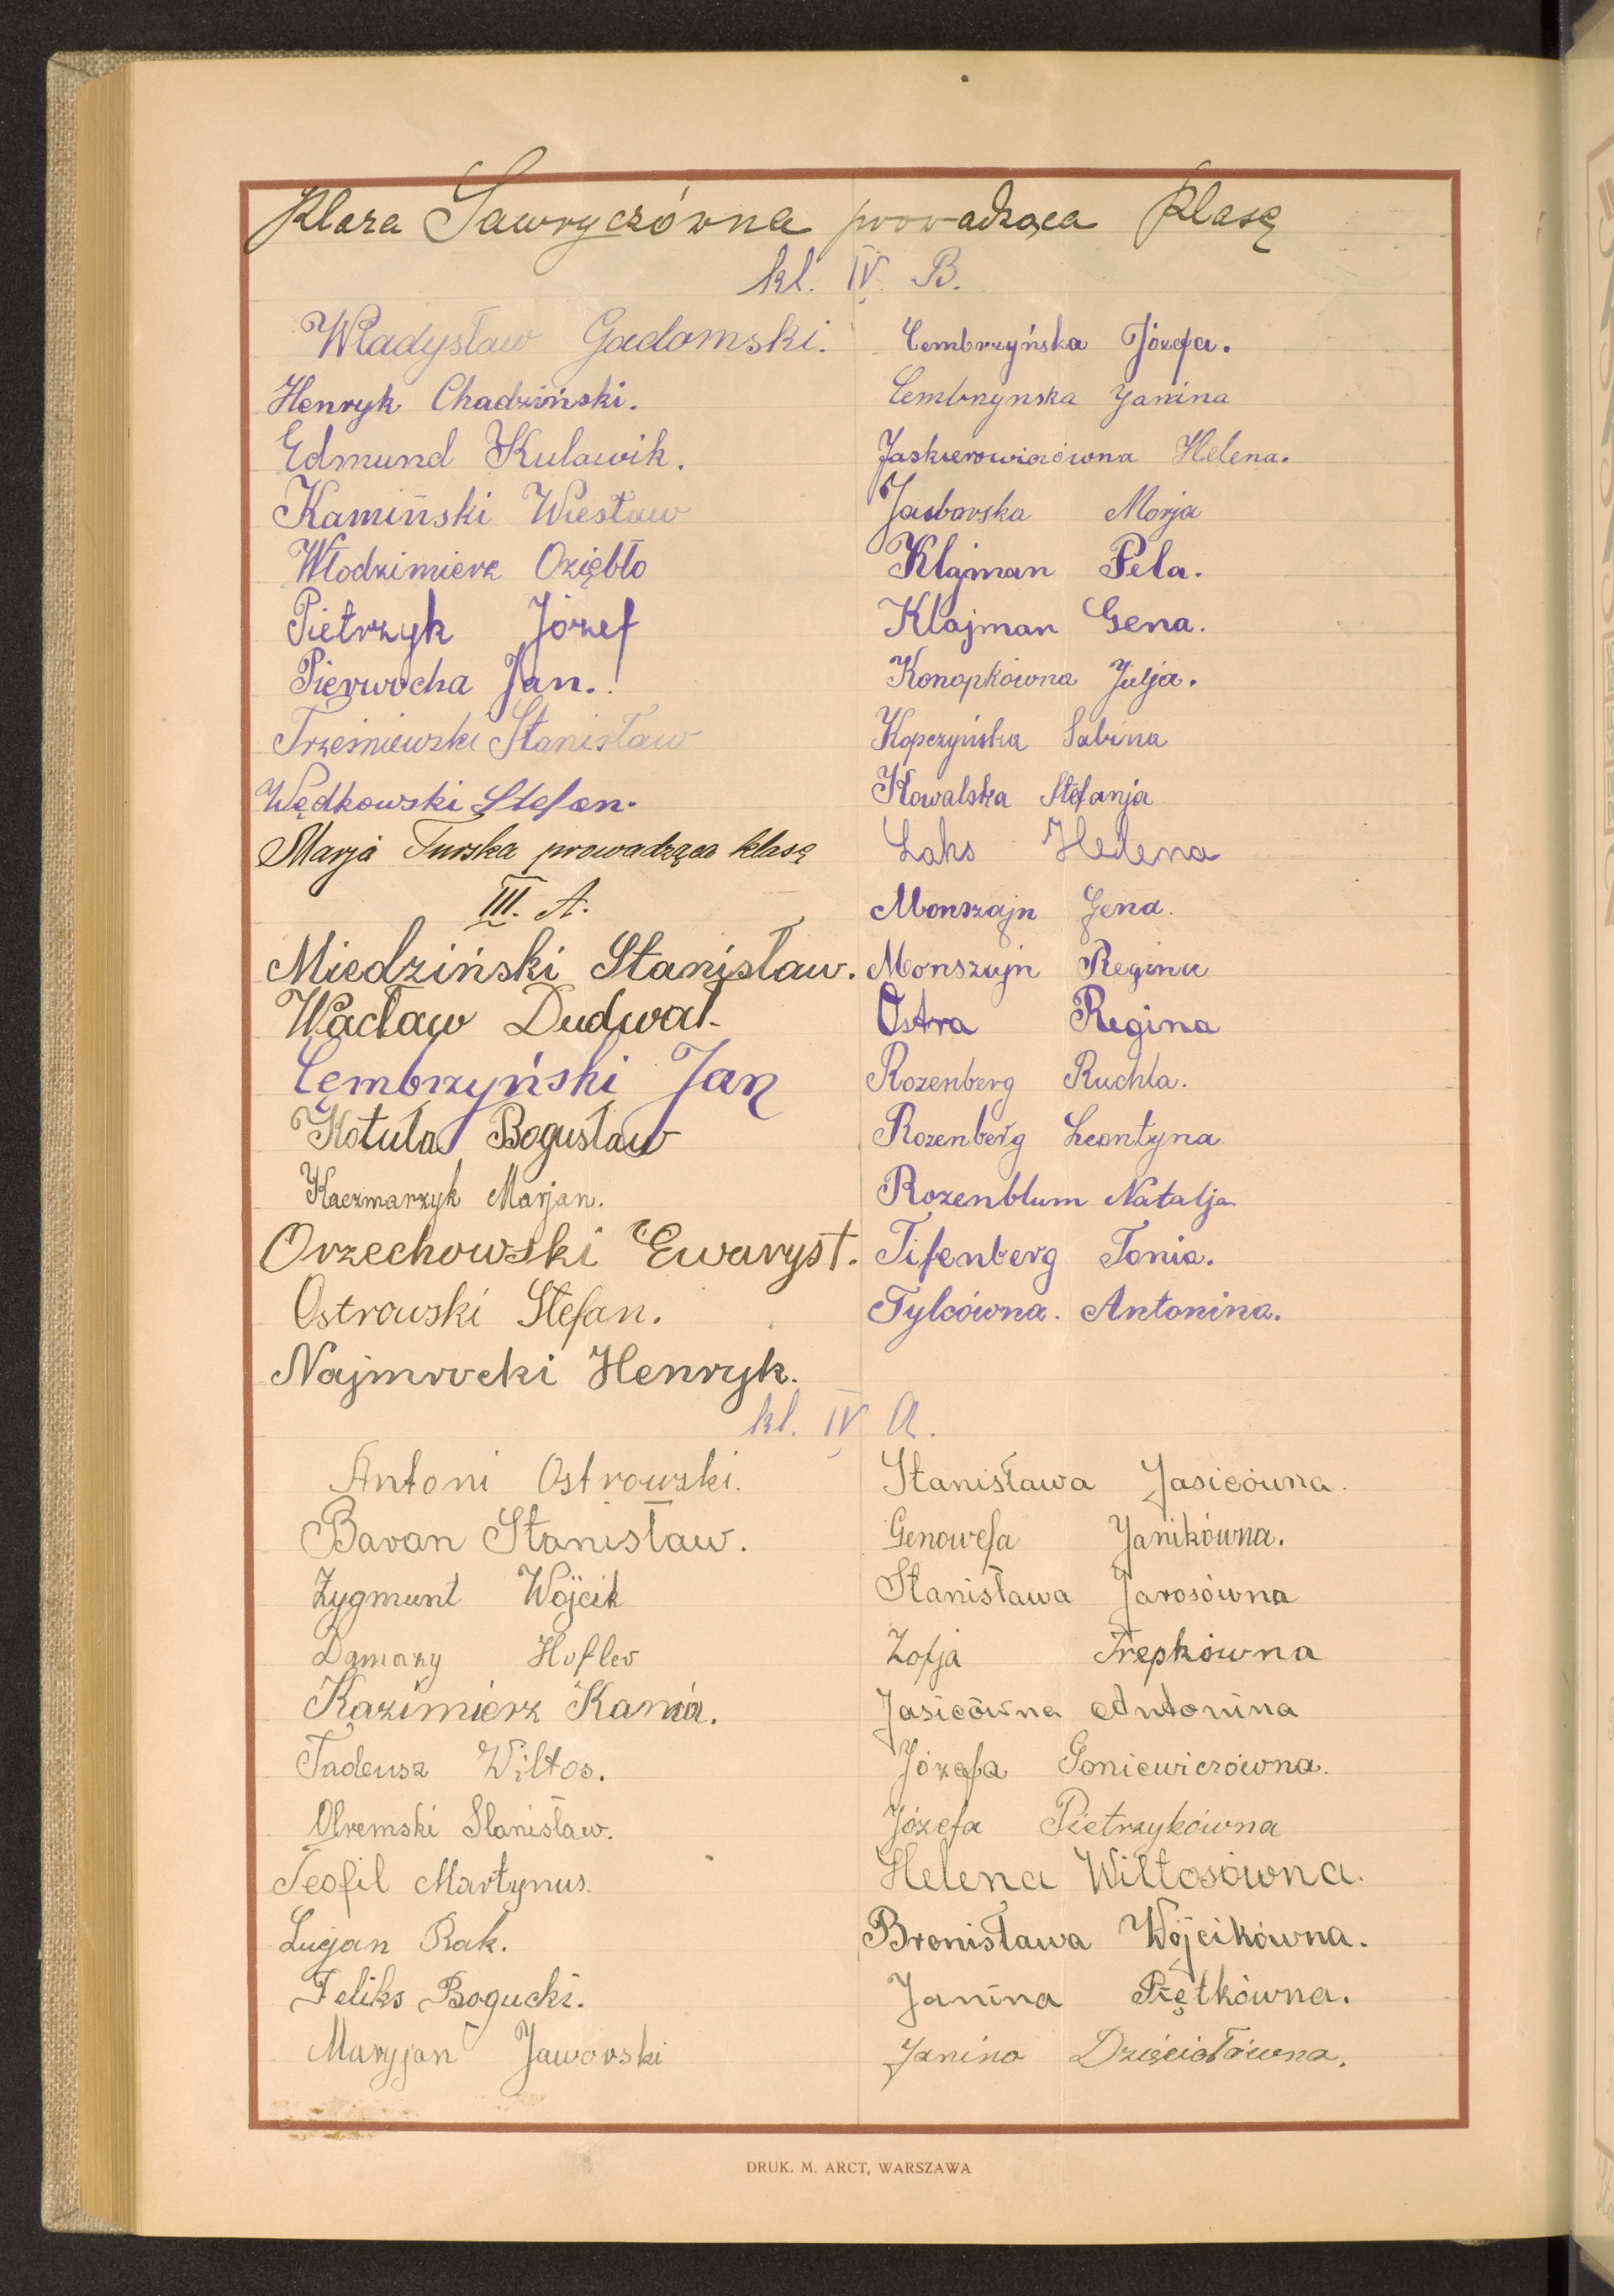 Klara Sawryczówna prowadząca klasę
kl. IV. B.
Władysław Gadomski.
Henryk Chadziński.
Edmund Kulawik.
Kamiński Wiesław
Włodzimierz Oziębło
Pietrzyk Józef
Pierwocha Jan.
Trześniewski Stanisław
Wędkowski Stefan.
Marja Turska prowadząca klasę
III. A.
Miedziński Stanisław.
Wacław Dudwał.
Cembrzyński Jan
Kotuła Bogusław
Kaczmarzyk Marjan.
Orzechowski Ewaryst.
Ostrowski Stefan.
Najmrocki Henryk.
Cembrzyńska Józefa.
Cembrzynska Janina
Jaskierowiczówna Helena.
Marja
Klajman Pela.
Klajman Gena.
Konopkówna Julja.
Kopczyńska Sabina
Kowalska Stefanja
Laks Helena
Monszajn Gena.
Monszajn Regina
Ostra Regina
Rozenberg Ruchla.
Rozenberg Leontyna.
Rozenblum Natalja.
Tifenberg Tonia.
Tylcówna. Antonina.
kl. IV A.
Antoni Ostrowski.
Baran Stanisław.
Zygmunt Wójcik
Damazy Hofler
Kazimierz Kania.
Tadeusz Wiltos.
Olremski Stanisław.
Teofil Martynus.
Lucjan Rak.
Feliks Bogucki.
Maryjan Jaworski
Stanisława Jasicówna.
Genowefa Janikówna.
Stanisława Jarosówna
Zofja Trepkówna
Jasicówna Antonina
Józefa Goniewiczówna.
Józefa Pietrzykówna
Helena Wiltosówna.
Bronisława Wójcikówna.
Janina Piętkówna.
Janina Dzięciołówna.
DRUK. M. ARCT, WARSZAWA